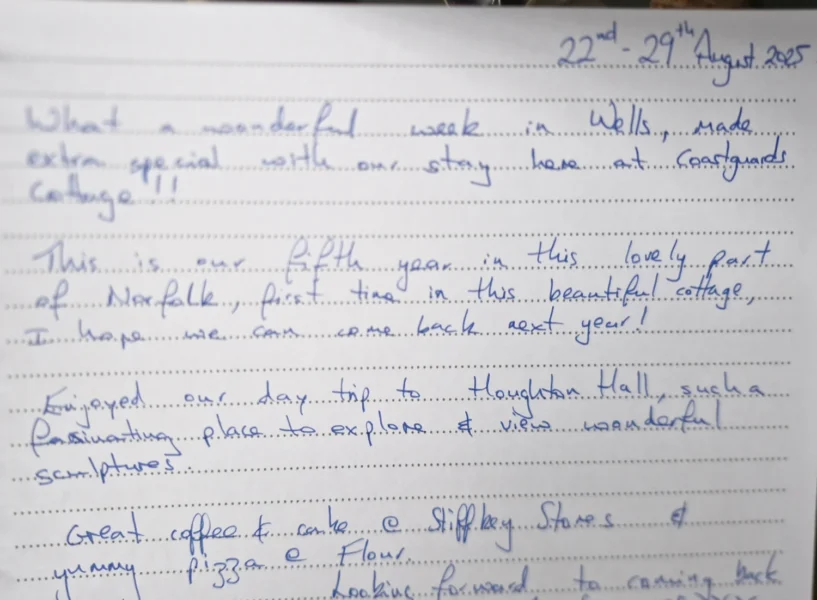 22nd - 29th August 2025
What a wonderful week in Wells, made
extra special with our stay here at Coastguards
Cottage!!
This is our fifth year in this lovely part
of Norfolk, first time in this beautiful cottage,
I hope we can come back next year!
Enjoyed our day trip to Houghton Hall, such a
fassinating place to explore & view wonderful
sculptures.
Great coffee & cake @ Stiffkey Stores &
yummy pizza @ Flour.
Looking forward to coming back